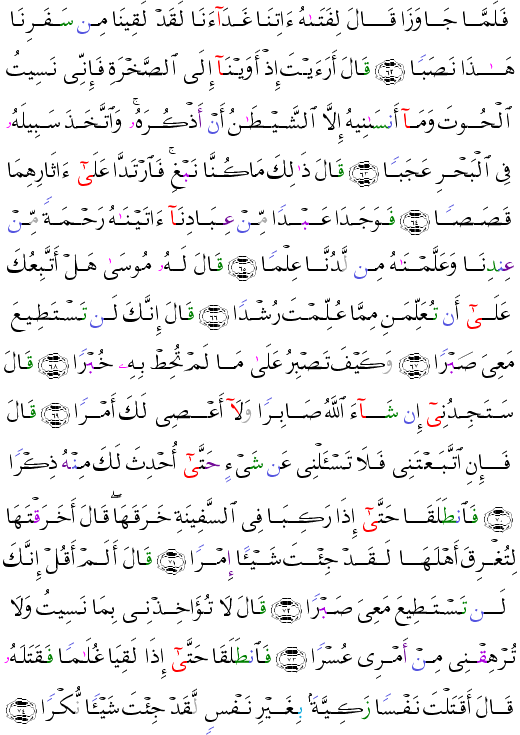 فَلَمَّا جَاوَزَا قَالَ لِفَتَىٰهُ ءَاتِنَا غَدَآءَنَا لَقَدْ لَقِينَا مِن سَفَرِنَا
هَـٰذَا نَصَبًا ﴿٦٢﴾ قَالَ أَرَءَيْتَ إِذْ أَوَيْنَآ إِلَى ٱلصَّخْرَةِ فَإِنِّى نَسِيتُ
ٱلْحُوتَ وَمَآ أَنسَىٰنِيهُ إِلَّا ٱلشَّيْطَـٰنُ أَنْ أَذْكُرَهُۥ ۚ وَٱتَّخَذَ سَبِيلَهُۥ
فِى ٱلْبَحْرِ عَجَبًا ﴿٦٣﴾ قَالَ ذَٰلِكَ مَا كُنَّا نَبْغِ ۚ فَٱرْتَدَّا عَلَىٰٓ ءَاثَارِهِمَا
قَصَصًا ﴿٦٤﴾ فَوَجَدَا عَبْدًا مِّنْ عِبَادِنَآ ءَاتَيْنَـٰهُ رَحْمَةً مِّنْ
عِندِنَا وَعَلَّمْنَـٰهُ مِن لَّدُنَّا عِلْمًا ﴿٦٥﴾ قَالَ لَهُۥ مُوسَىٰ هَلْ أَتَّبِعُكَ
عَلَىٰٓ أَن تُعَلِّمَنِ مِمَّا عُلِّمْتَ رُشْدًا ﴿٦٦﴾ قَالَ إِنَّكَ لَن تَسْتَطِيعَ
مَعِىَ صَبْرًا ﴿٦٧﴾ وَكَيْفَ تَصْبِرُ عَلَىٰ مَا لَمْ تُحِطْ بِهِۦ خُبْرًا ﴿٦٨﴾ قَالَ
سَتَجِدُنِىٓ إِن شَآءَ ٱللَّهُ صَابِرًا وَلَآ أَعْصِى لَكَ أَمْرًا ﴿٦٩﴾ قَالَ
فَإِنِ ٱتَّبَعْتَنِى فَلَا تَسْـَٔلْنِى عَن شَىْءٍ حَتَّىٰٓ أُحْدِثَ لَكَ مِنْهُ ذِكْرًا
﴿٧٠﴾ فَٱنطَلَقَا حَتَّىٰٓ إِذَا رَكِبَا فِى ٱلسَّفِينَةِ خَرَقَهَا ۖ قَالَ أَخَرَقْتَهَا
لِتُغْرِقَ أَهْلَهَا لَقَدْ جِئْتَ شَيْـًٔا إِمْرًا ﴿٧١﴾ قَالَ أَلَمْ أَقُلْ إِنَّكَ
لَن تَسْتَطِيعَ مَعِىَ صَبْرًا ﴿٧٢﴾ قَالَ لَا تُؤَاخِذْنِى بِمَا نَسِيتُ وَلَا
تُرْهِقْنِى مِنْ أَمْرِى عُسْرًا ﴿٧٣﴾ فَٱنطَلَقَا حَتَّىٰٓ إِذَا لَقِيَا غُلَـٰمًا فَقَتَلَهُۥ
قَالَ أَقَتَلْتَ نَفْسًا زَكِيَّةًۢ بِغَيْرِ نَفْسٍ لَّقَدْ جِئْتَ شَيْـًٔا نُّكْرًا ﴿٧٤﴾